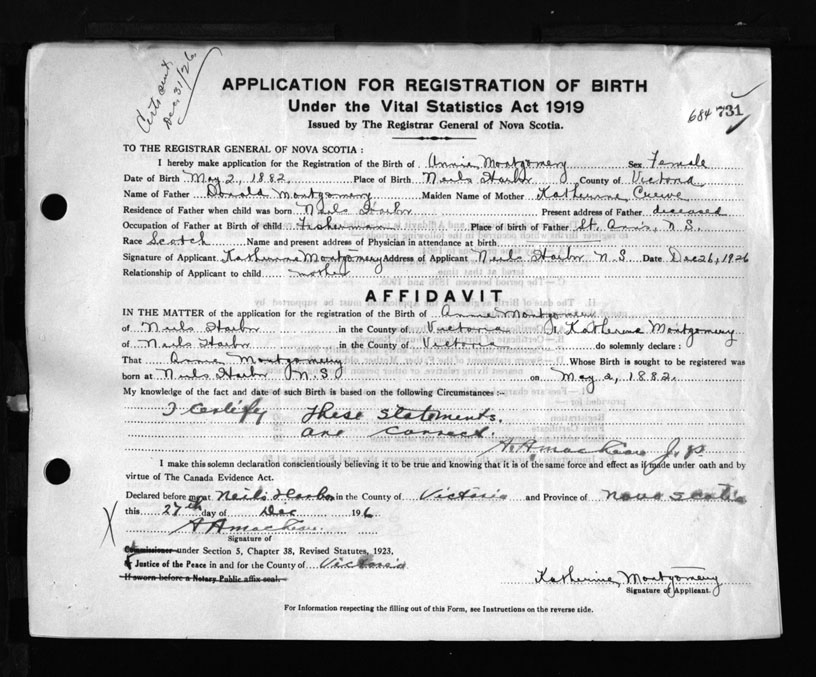 Certs sent
Dec 31/26
APPLICATION FOR REGISTRATION OF BIRTH
Under the Vital Statistics Act 1919
Issued by The Registrar General of Nova Scotia.
684 731
TO THE REGISTRAR GENERAL OF NOVA SCOTIA:
I hereby make application for the Registration of the Birth of Annie Montgomery Sex Female
Date of Birth May 2, 1882 Place of Birth Neils Harbor County of Victoria
Name of Father Donald Montgomery Maiden Name of Mother Katherine
Residence of Father when child was born Neils Harbor Present address of Father deceased
Occupation of Father at Birth of child Fisherman Place of birth of Father St. Anns, N.S.
Race Scotch Name and present address of Physician in attendance at birth
Signature of Applicant Katherine Montgomery Address of Applicant Neils Harbor N.S Date Dec 26, 1926
Relationship of Applicant to child mother
AFFIDAVIT
IN THE MATTER of the application for the registration of the Birth of Annie Montgomery
of Neils Harbor in the County of Victoria I, Katherine Montgomery
of Neils Harbor in the County of Victoria do solemnly declare:
That Annie Montgomery Whose Birth is sought to be registered was
born at Neils Harbor N.S on May 2, 1882.
My knowledge of the fact and date of such Birth is based on the following Circumstances:-
I Certify these statements.
are correct.
J.P.
I make this solemn declaration conscientiously believing it to be true and knowing that it is of the same force and effect as if made under oath and by
virtue of The Canada Evidence Act.
Declared before me at Neils Harbor in the County of Victoria and Province of Nova Scotia
this 27th day of Dec 1926
Signature of
Commissioner under Section 5, Chapter 38, Revised Statutes, 1923,
Justice of the Peace in and for the County of Victoria
If sworn before a Notary Public affix seal.
Katherine Montgomery
Signature of Applicant.
For Information respecting the filling out of this Form, see Instructions on the reverse side.